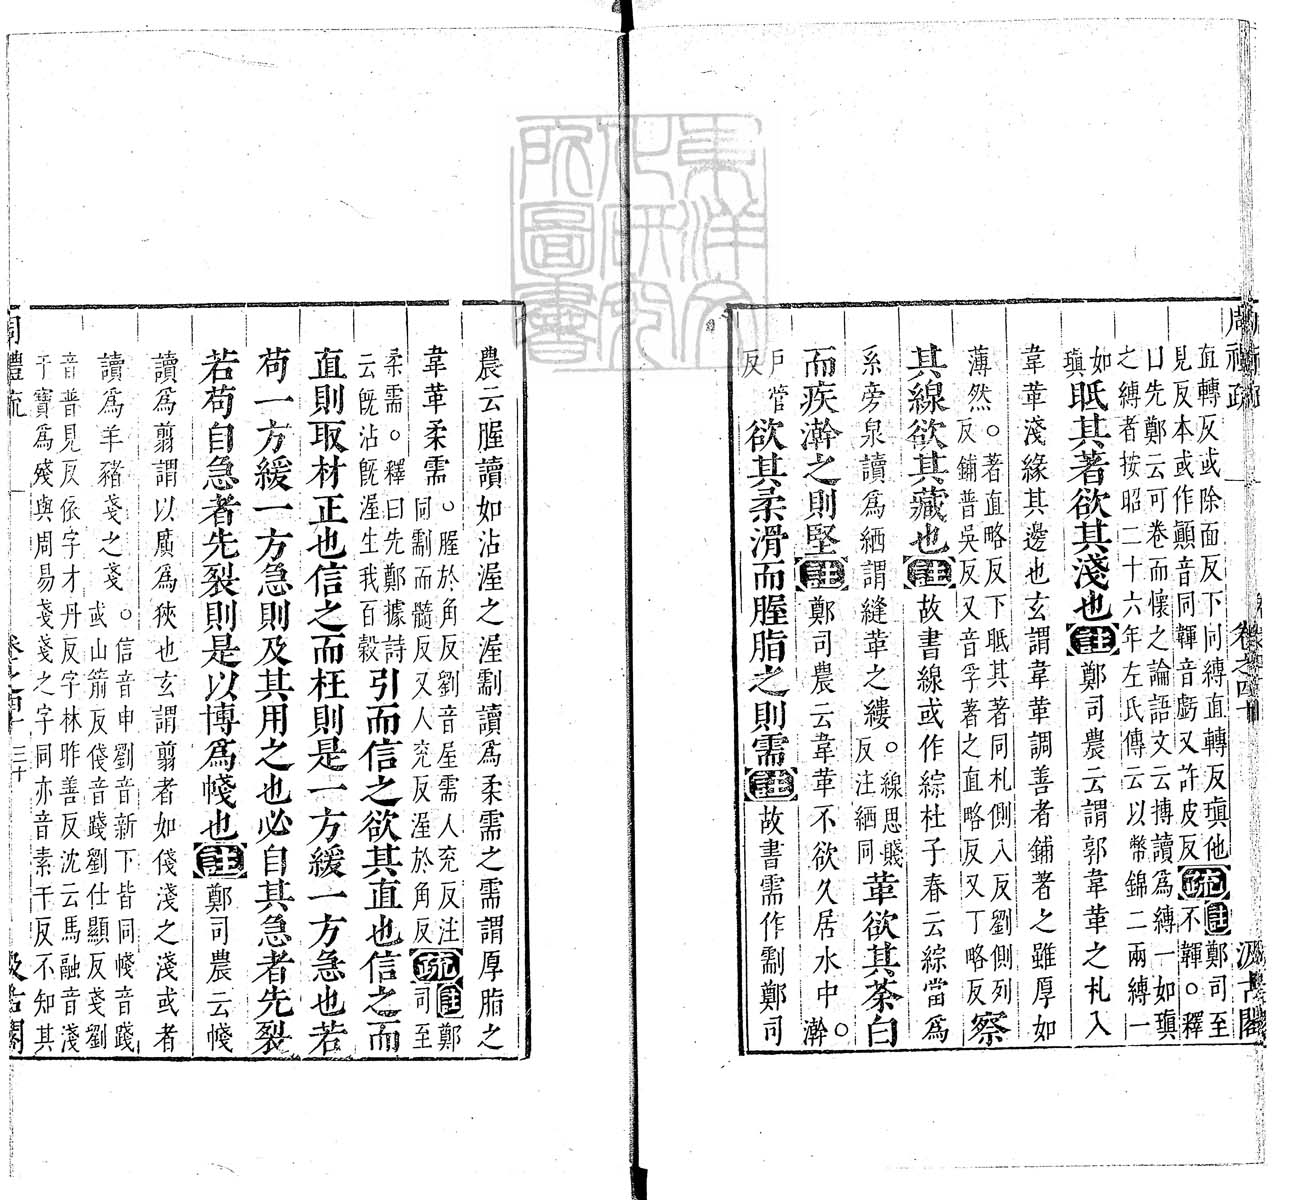 直轉反或除面反下同縛直轉反瑱他
見反本或作顛音同韗音虧又許皮反
疏
不韗○釋
註鄭司至
口先鄭云可卷而懷之論語文云摶讀爲縛一如瑱
之縛者按昭二十六年左氏傳云以幣錦二兩縛一
如瑱
眡其著欲其淺也註鄭司農云謂郭韋革之札入
韋革淺緣其邊也玄謂韋革調善者鋪著之雖厚如
薄然
○著直略反下眡其著同札側入反劉側列
反鋪普吳反又音孚著之直略反又丁略反
察
其線欲其藏也註故書線或作綜杜子春云綜當爲
系旁泉讀爲絤謂縫革之縷
○線思賤
反注絤同
革欲其荼白
而疾澣之則堅註鄭司農云韋革不欲久居水中
○澣
戶管
反
欲其柔滑而腛脂之則需註故書需作㓴鄭司
農云腛讀如沾渥之渥㓴讀爲柔需之需謂厚脂之
韋革柔需
○腛於角反劉音屋需人兖反注
同㓴而髓反又人兖反渥於角反
疏
註鄭
司至
柔需○釋曰先鄭據詩
云旣沾旣渥生我百糓
引而信之欲其直也信之而
直則取材正也信之而枉則是一方緩一方急也若
苟一方緩一方急則及其用之也必自其急者先裂
若苟自急者先裂則是以博爲帴也註鄭司農云帴
讀爲翦謂以廣爲狹也玄謂翦者如俴淺之淺或者
讀爲羊豬戔之戔
○信音申劉音新下皆同帴音踐
或山箭反俴音踐劉仕顯反戔劉
音普見反依字才丹反字林昨善反沈云馬融音淺
干寶爲殘與周易戔戔之字同亦音素干反不知其
周禮疏
卷之四十
三十
汲古閣
東洋文化研究所圖書